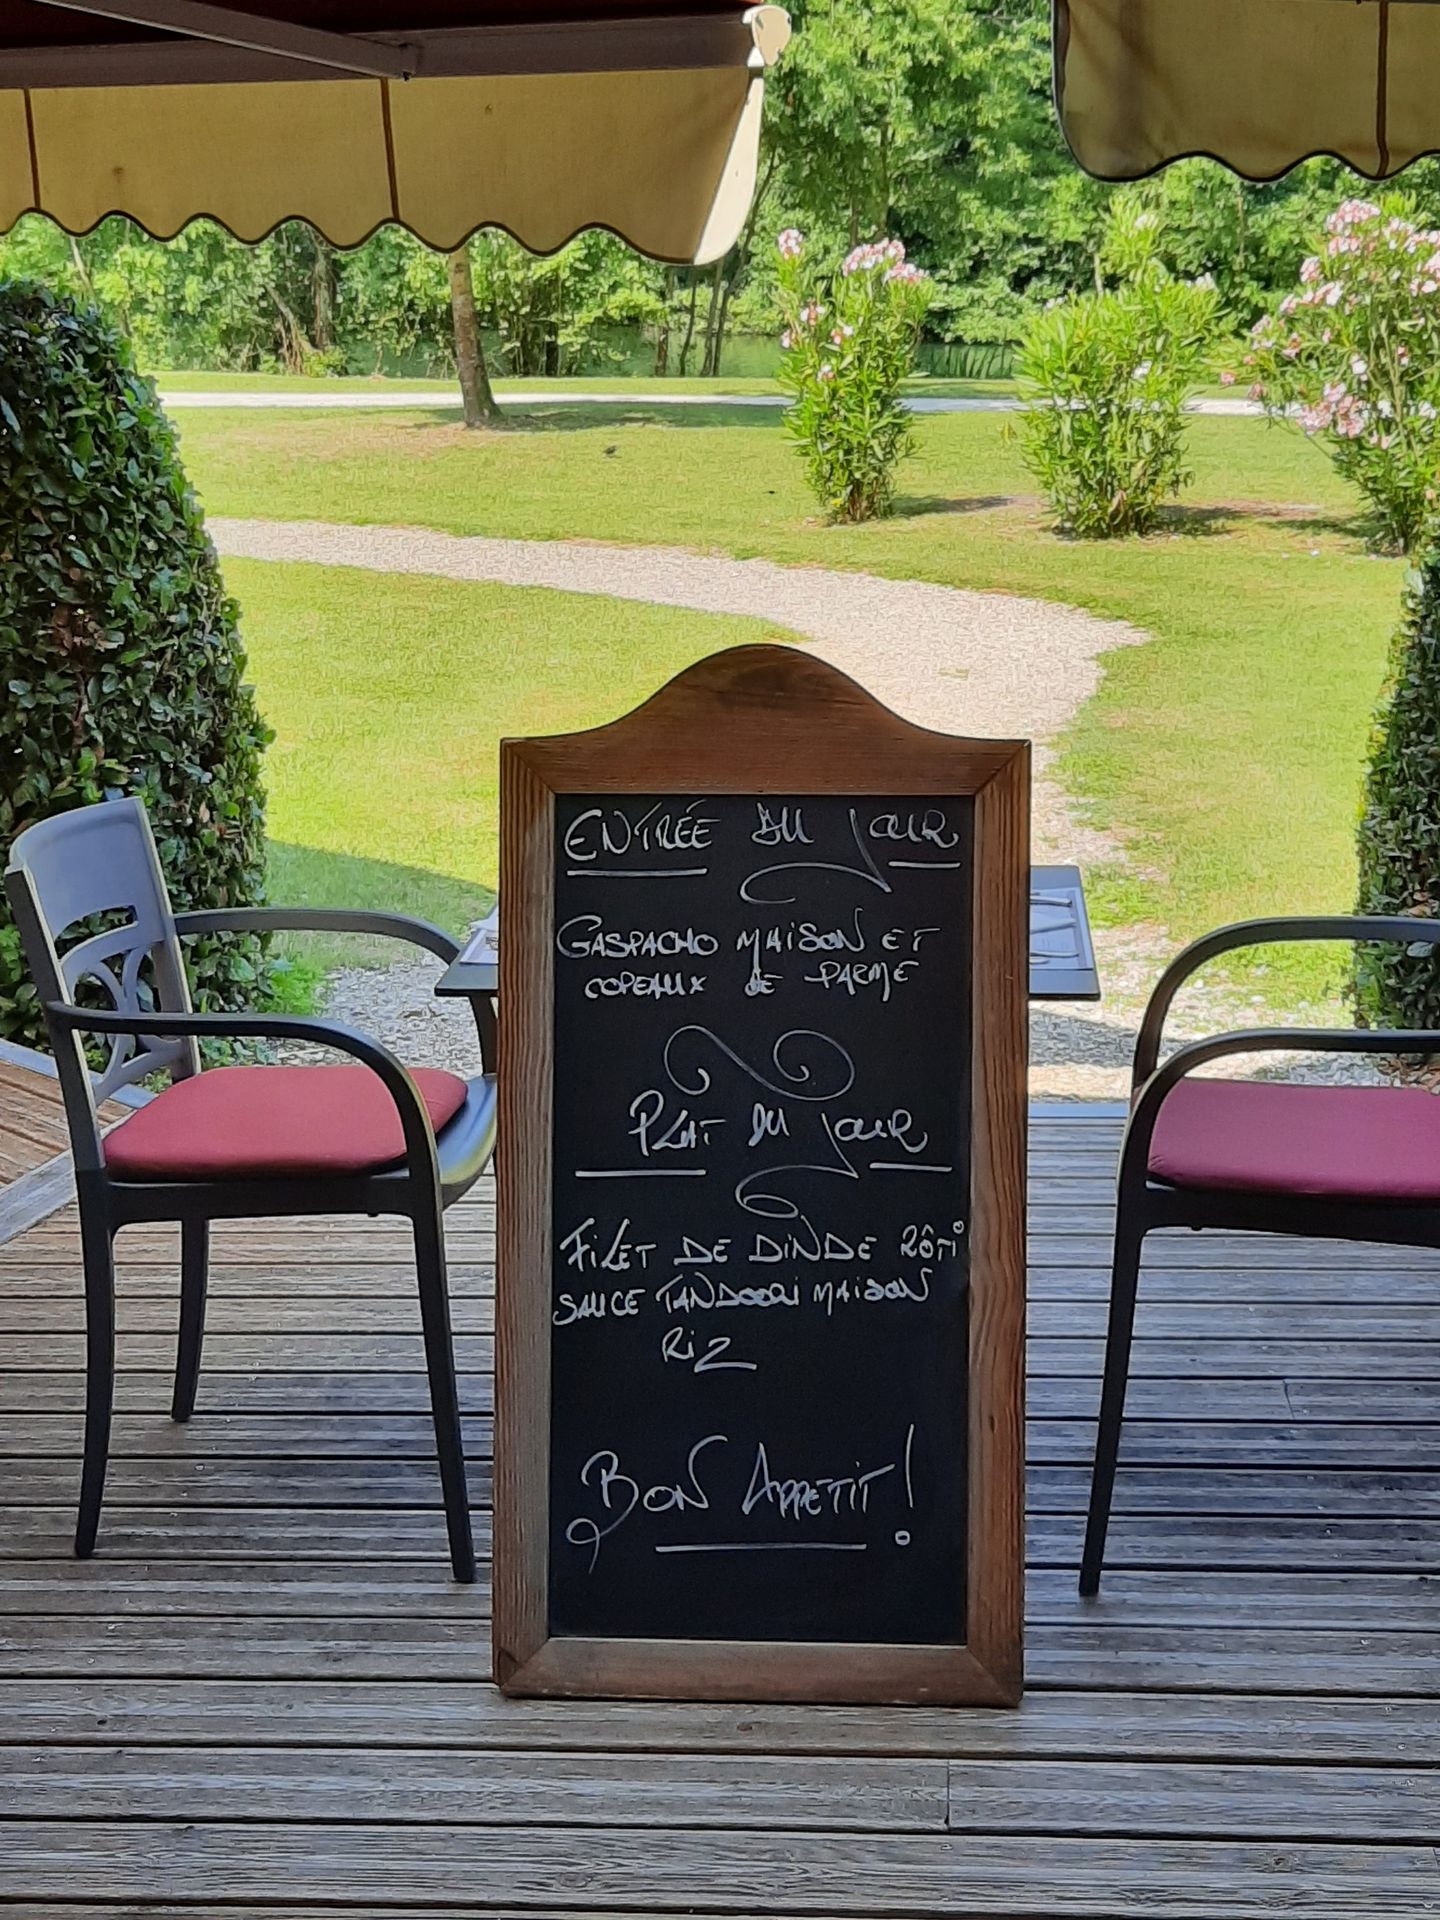 ENTRÉE DU JOUR
GASPACHO MAISON ET
COPEAUX DE PARME
PLAT DU JOUR
FILET DE DINDE RÔTI
SAUCE TANDOORI MAISON
RIZ
BON APPETIT !